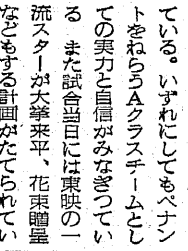 ている。いずれにしてもペナン
トをねらうAクラスチームとし
ての実力と自信がみなぎつてい
る　また試合当日には東映の一
流スターが大挙来平、花束贈呈
などもする計画がたてられてい